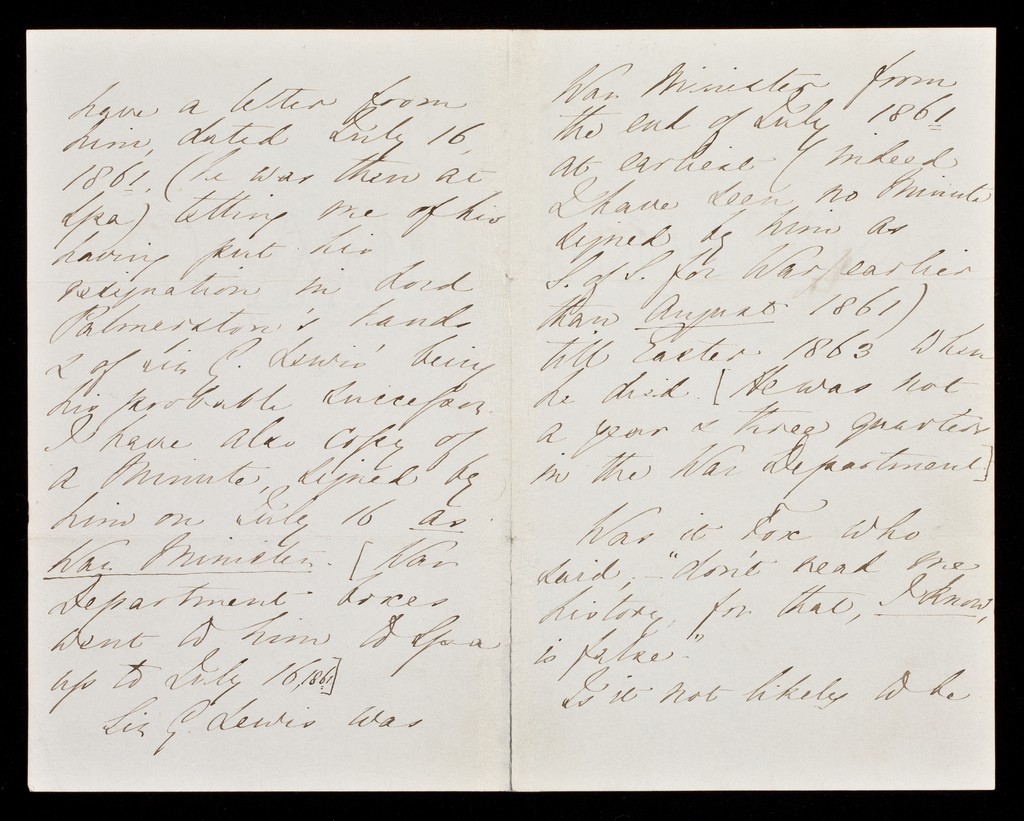 have a letter from
him, dated July 16,
1861, (he was then at
Spa) telling me of his
having put his
resignation in Lord
Palmerston's hands
& of Sir G. Lewis' being
his probable successor.
I have also copy of
a Minute, signed by
him on July 16 as
War Minister. [War
Department boxes
went to him to Spa
up to July 16, 1861]
Sir G. Lewis was
War Minister from
the end of July 1861
at earliest (indeed
I have seen no Minute
signed by him as
S. of S. for War earlier
than August 1861)
till Easter 1863 when
he died. [He was not
a year & three quarters
in the War Department]
Was it Fox who
said, - "don't read me
history, for that, I know,
is false".
Is it not likely to be